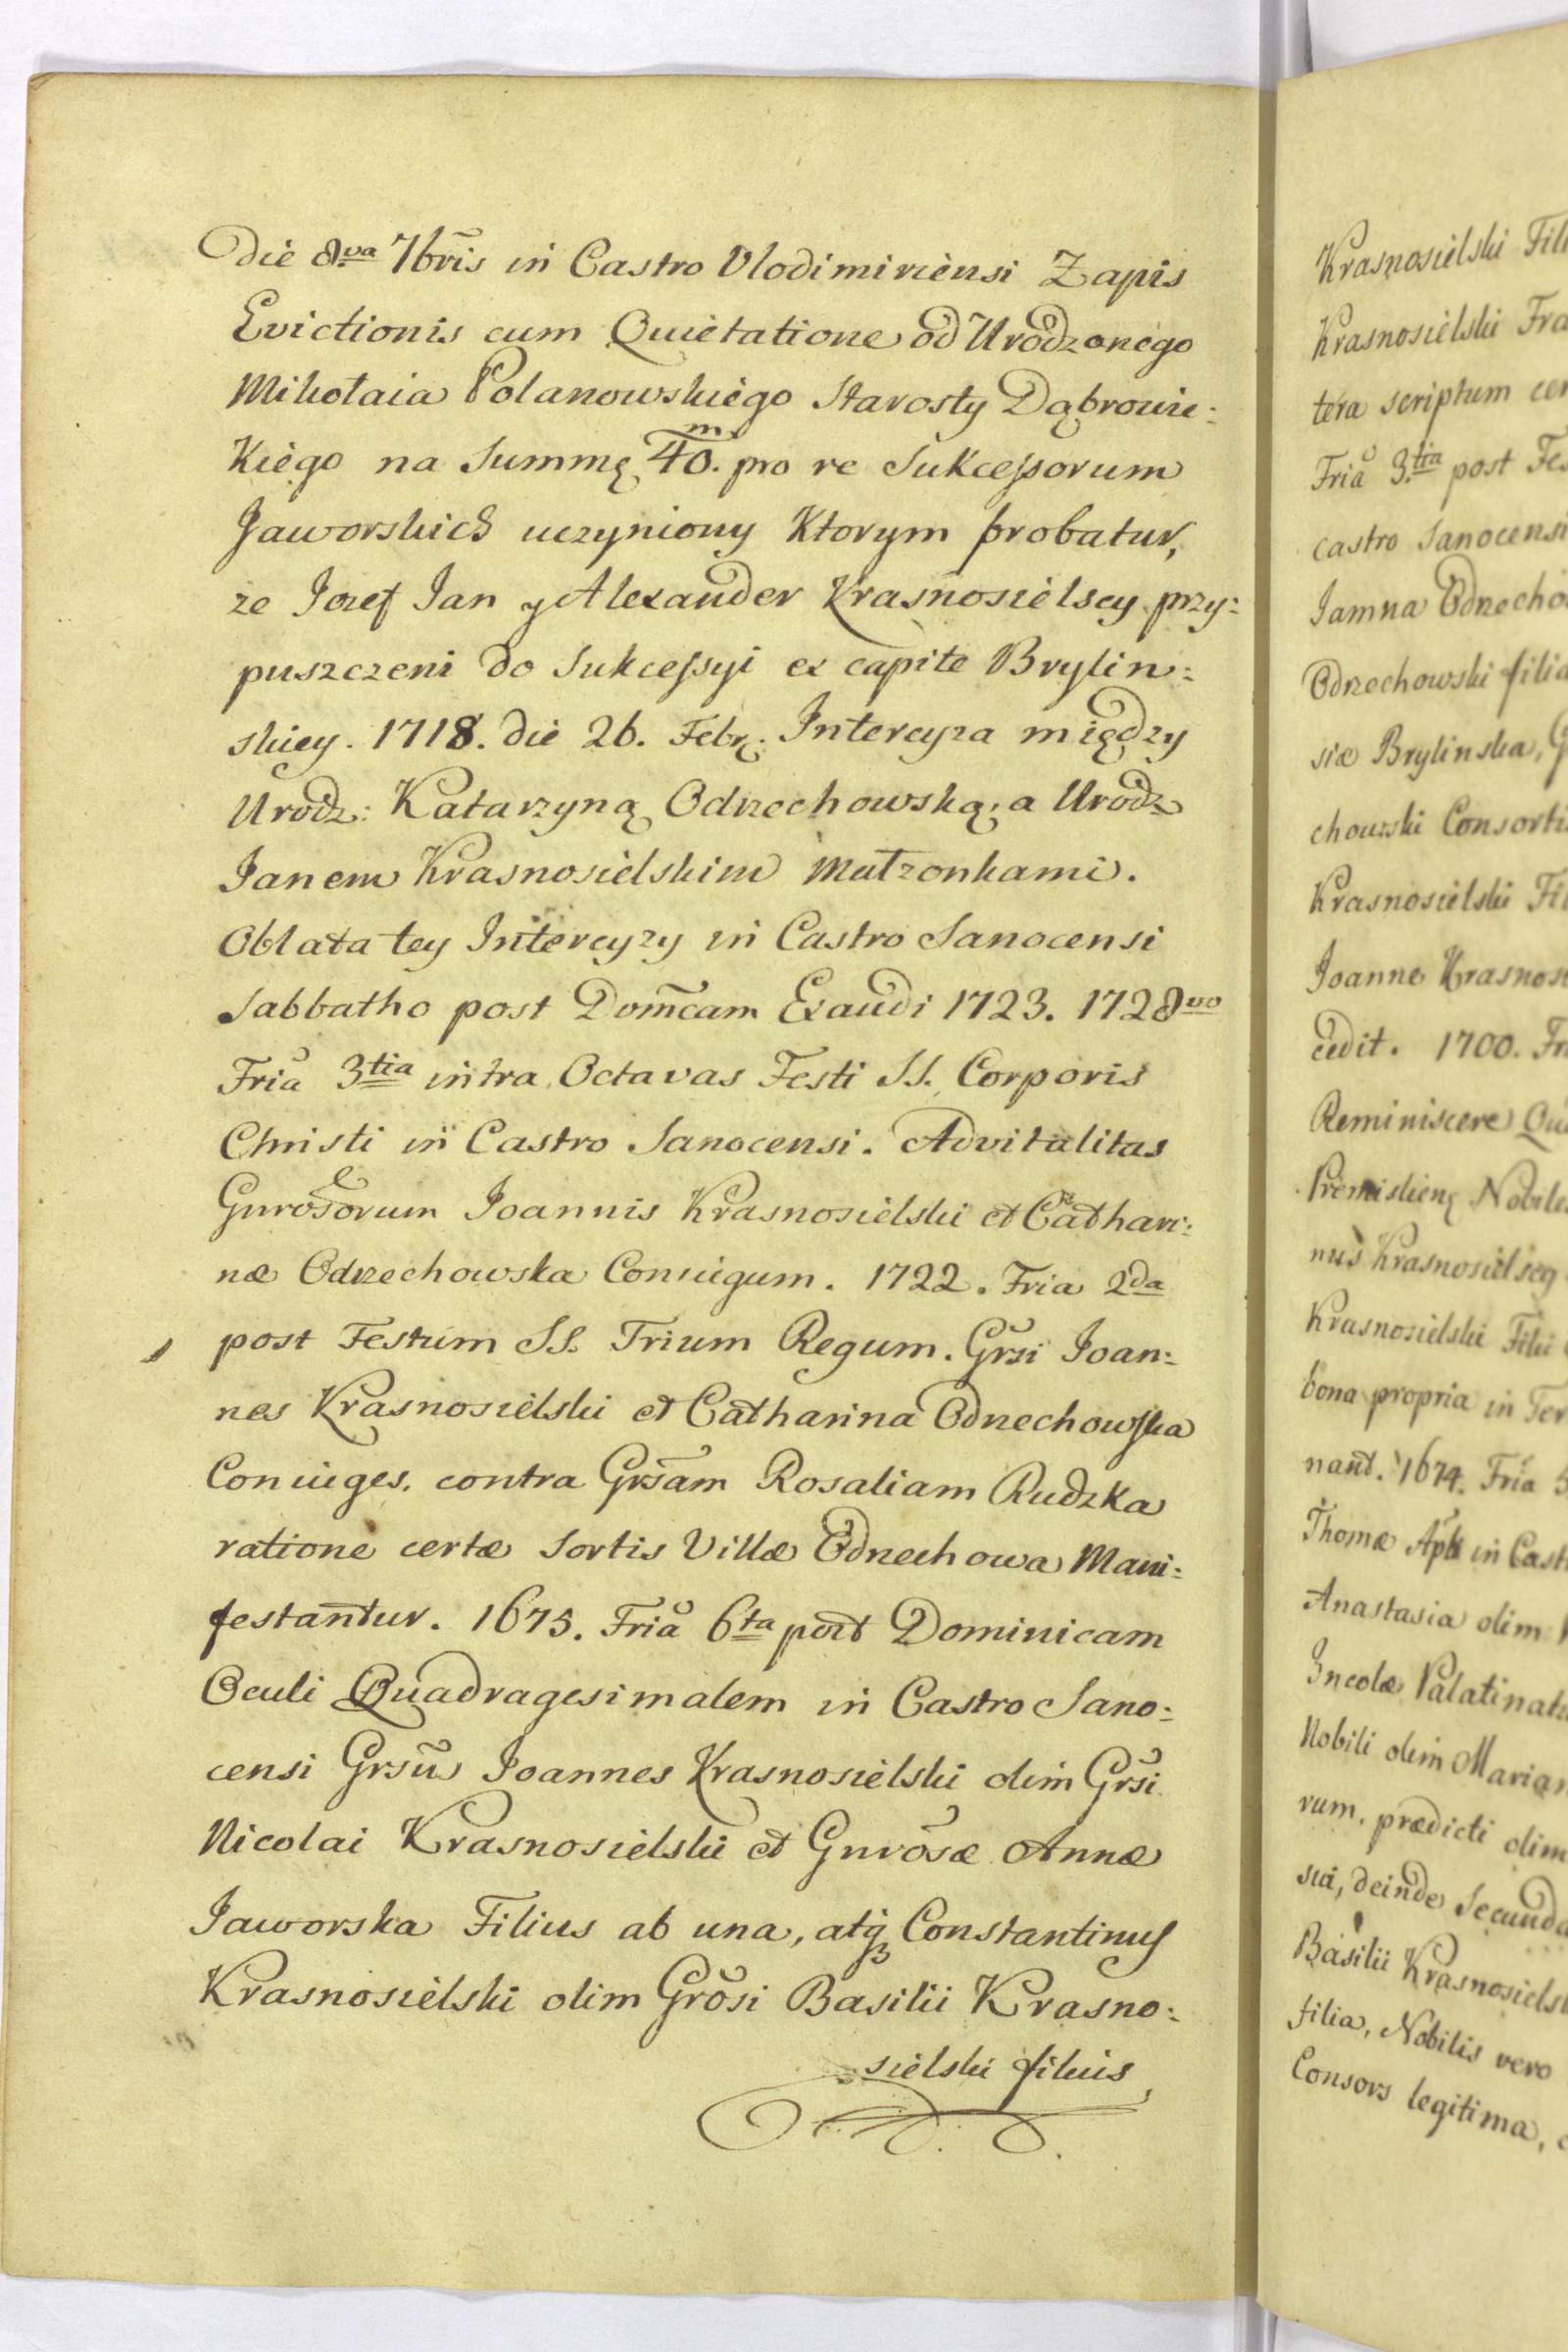 Die 8va 7bris in Castro Vlodimiriensi Zapis
Evictionis cum Quietatione od Urodzonego
Mikołaia Polanowskiego Starosty Dąbrowie:
kiego na Summę 40.m pro re Sukcessorum
Jaworskich uczyniony ktorym probatur,
ze Jozef Jan y Alexander Krasnosielscy przy:
puszczeni do Sukcessyi ex capite Brylin:
skiey. 1718. die 26. Febr. Intercyza między
Urodz: Katarzyną Odrzechowską, a Urodz
Janem Krasnosielskim Małżonkami.
Oblata tey Intercyzy in Castro Sanocensi
Sabbatho post Domcam Exaudi 1723. 1728vo
Fria 3tia intra Octavas Festi SS. Corporis
Christi in Castro Sanocensi. Advitalitas
Gnrosorum Joannis Krasnosielski et Cathari:
næ Odrzechowska Coniugum. 1722. Fria 2da
post Festum SS. Trium Regum. Grsi Joan:
nes Krasnosielski et Catharina Odrzechowska
Coniuges, contra Grsam Rosaliam Rudzka
ratione certæ Sortis Villæ Odrzechowa Mani:
festantur. 1675. Fria 6ta post Dominicam
Oculi Quadragesimalem in Castro Sano:
censi Grsus Joannes Krasnosielski olim Grsi
Nicolai Krasnosielski et Gnrosæ Annæ
Jaworska Filius ab una, atq Constantinus
Krasnosielski olim Grosi Basilii Krasno:
sielski filius,
Krasnosielski
Krasnosielski
tera scriptum
Fria 3.tia post
castro Sanocensi
Jamna
Odrzechowski
siæ Brylinska,
chowski
Krasnosielski
Joanne
cedit. 1700.
Reminiscere
Nobiles
nus Krasnosielscy
Krasnosielski Filii
bona propria in
nant. 1674. Fria
Thomæ Apli in
Anastasia olim
Incolæ
Nobili olim
rum, prædicti olim
sui, deinde
Basilii
filia, Nobilis vero
Consors legitima,